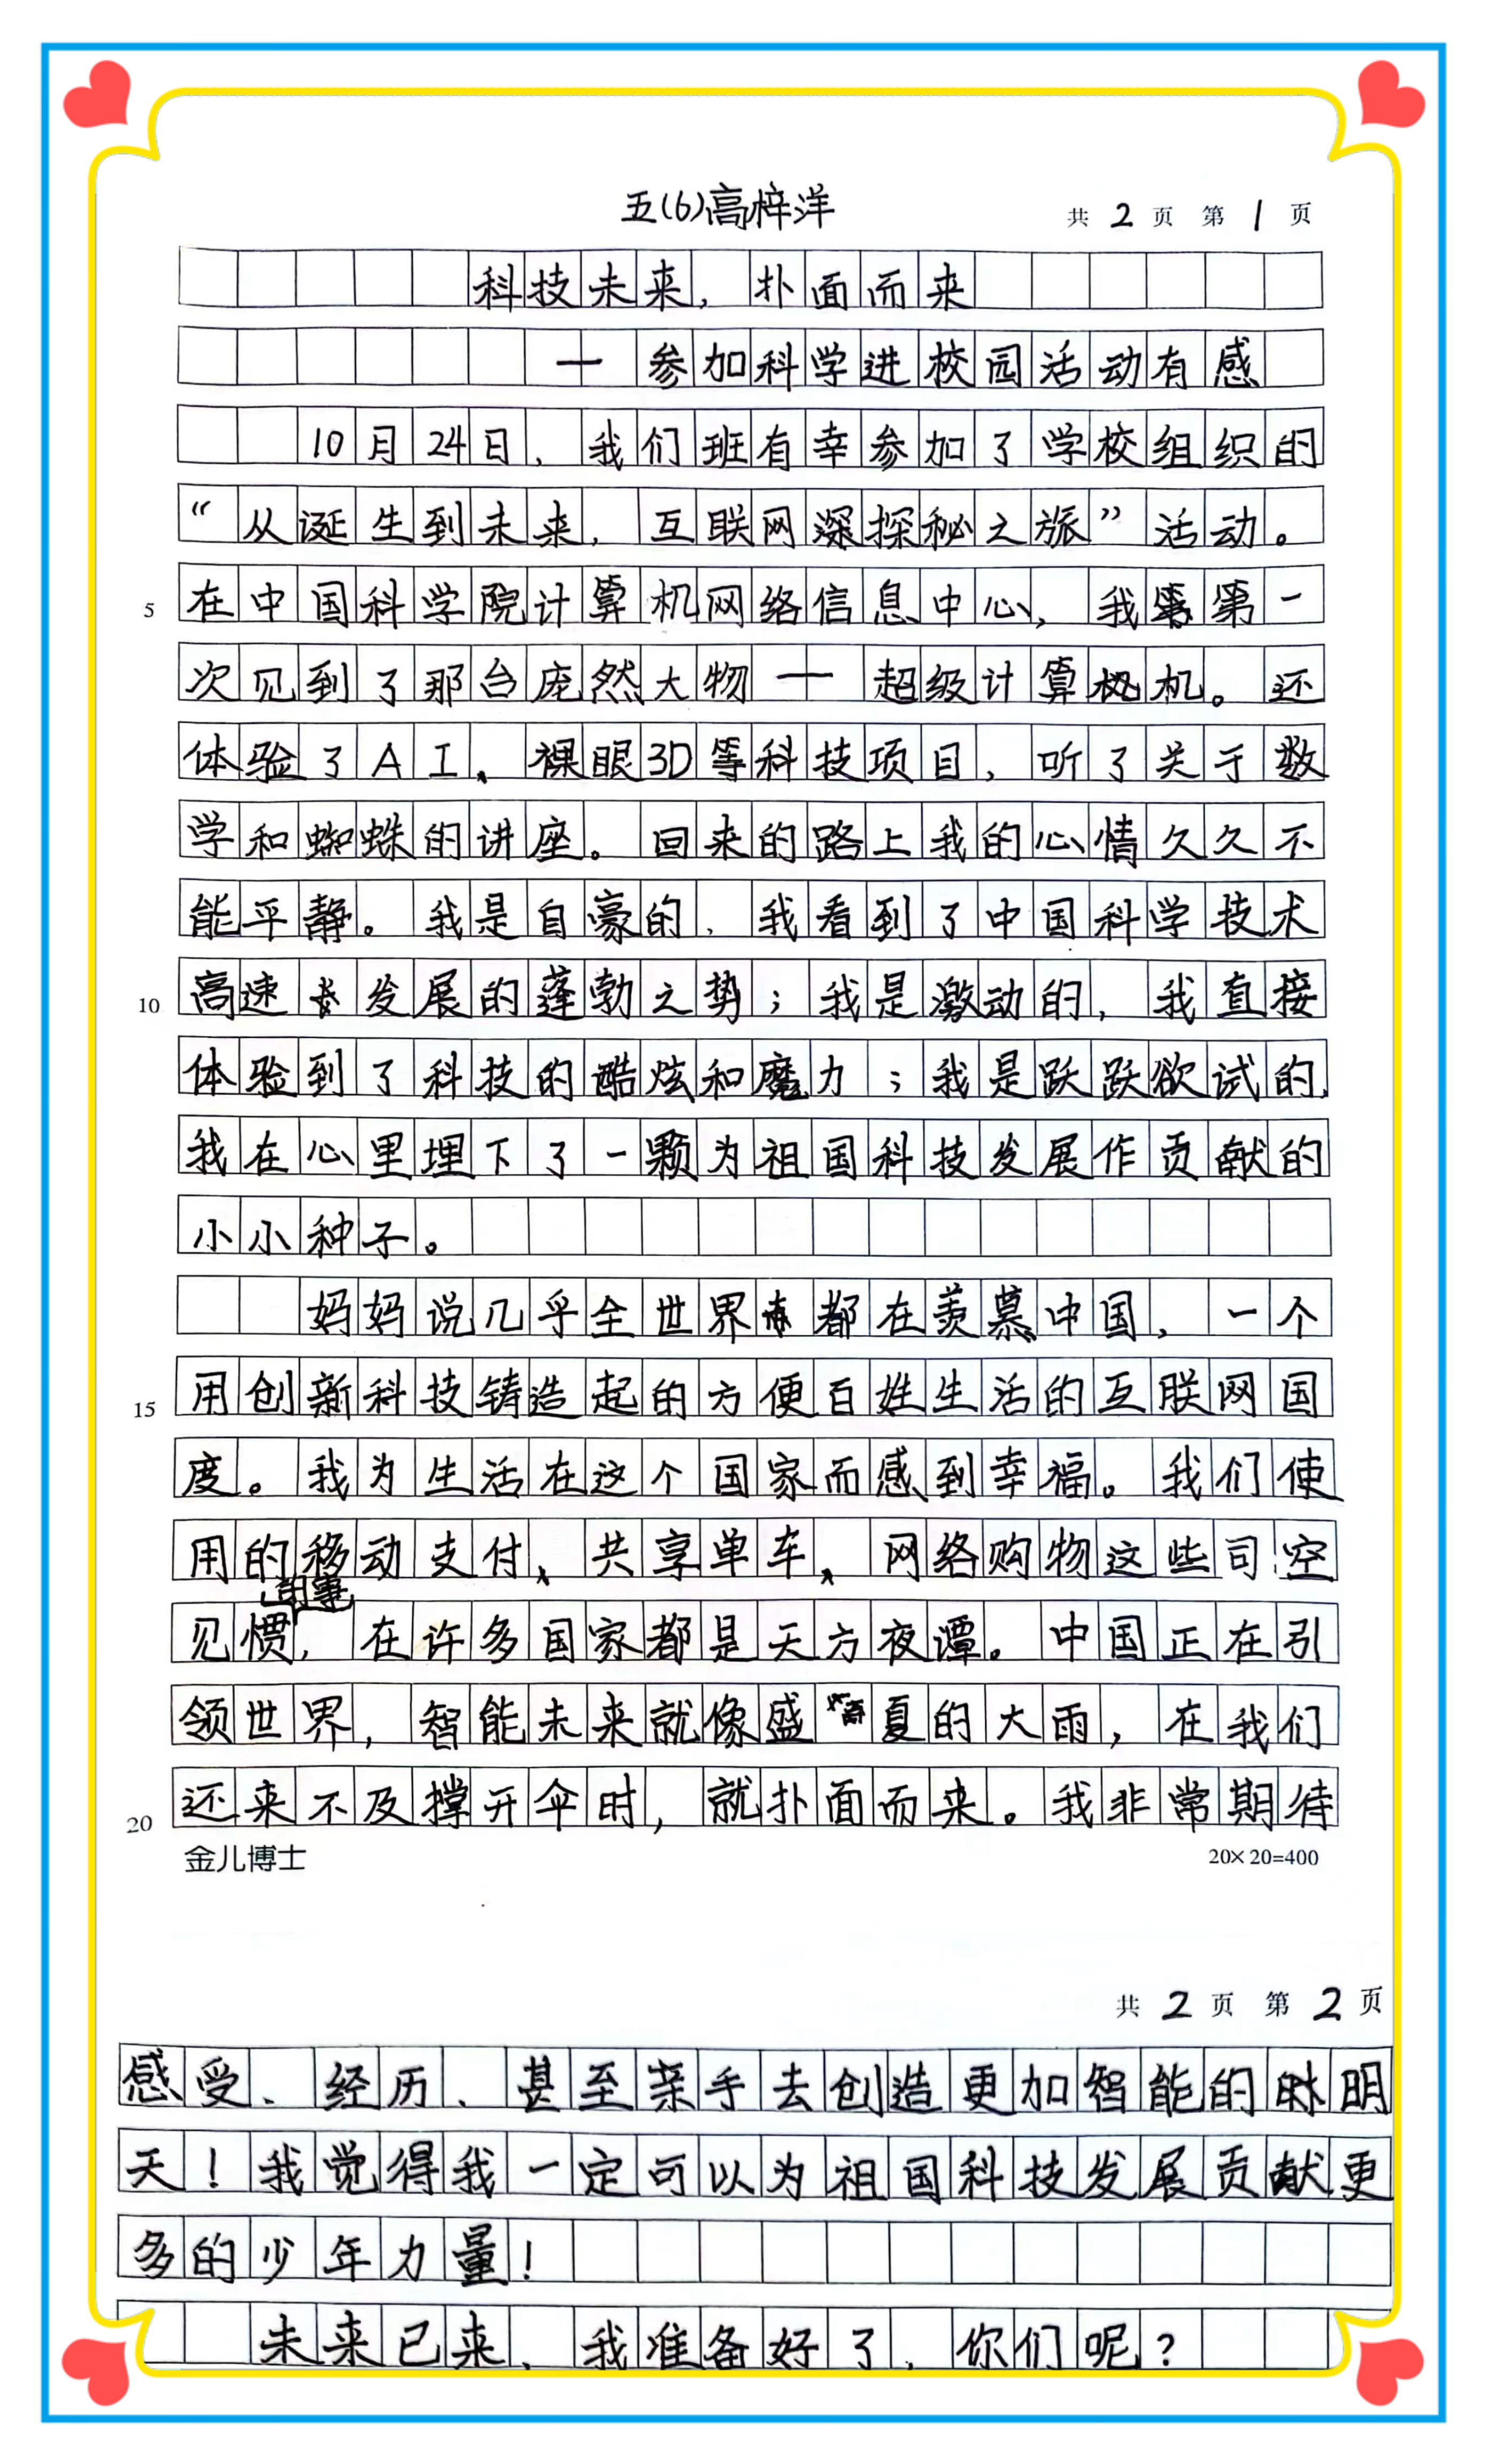 五(6)高梓洋
共 2 页 第 1 页
科技未来，扑面而来
—参加科学进校园活动有感
10月24日，我们班有幸参加了学校组织的
“从诞生到未来，互联网深探秘之旅”活动。
5 在中国科学院计算机网络信息中心，我第一
次见到了那台庞然大物——超级计算机。还
体验了AI、裸眼3D等科技项目，听了关于数
学和蜘蛛的讲座。回来的路上我的心情久久不
能平静。我是自豪的，我看到了中国科学技术
10 高速发展的蓬勃之势；我是激动的，我直接
体验到了科技的酷炫和魔力；我是跃跃欲试的，
我在心里埋下了一颗为祖国科技发展作贡献的
小小种子。
妈妈说几乎全世界都在羡慕中国，一个
15 用创新科技铸造起的方便百姓生活的互联网国
度。我为生活在这个国家而感到幸福。我们使
用的移动支付、共享单车、网络购物这些司空
见惯的事，在许多国家都是天方夜谭。中国正在引
领世界，智能未来就像盛夏的大雨，在我们
20 还来不及撑开伞时，就扑面而来。我非常期待
金儿博士
20×20=400
共 2 页 第 2 页
感受、经历、甚至亲手去创造更加智能的明
天！我觉得我一定可以为祖国科技发展贡献更
多的少年力量！
未来已来，我准备好了，你们呢？